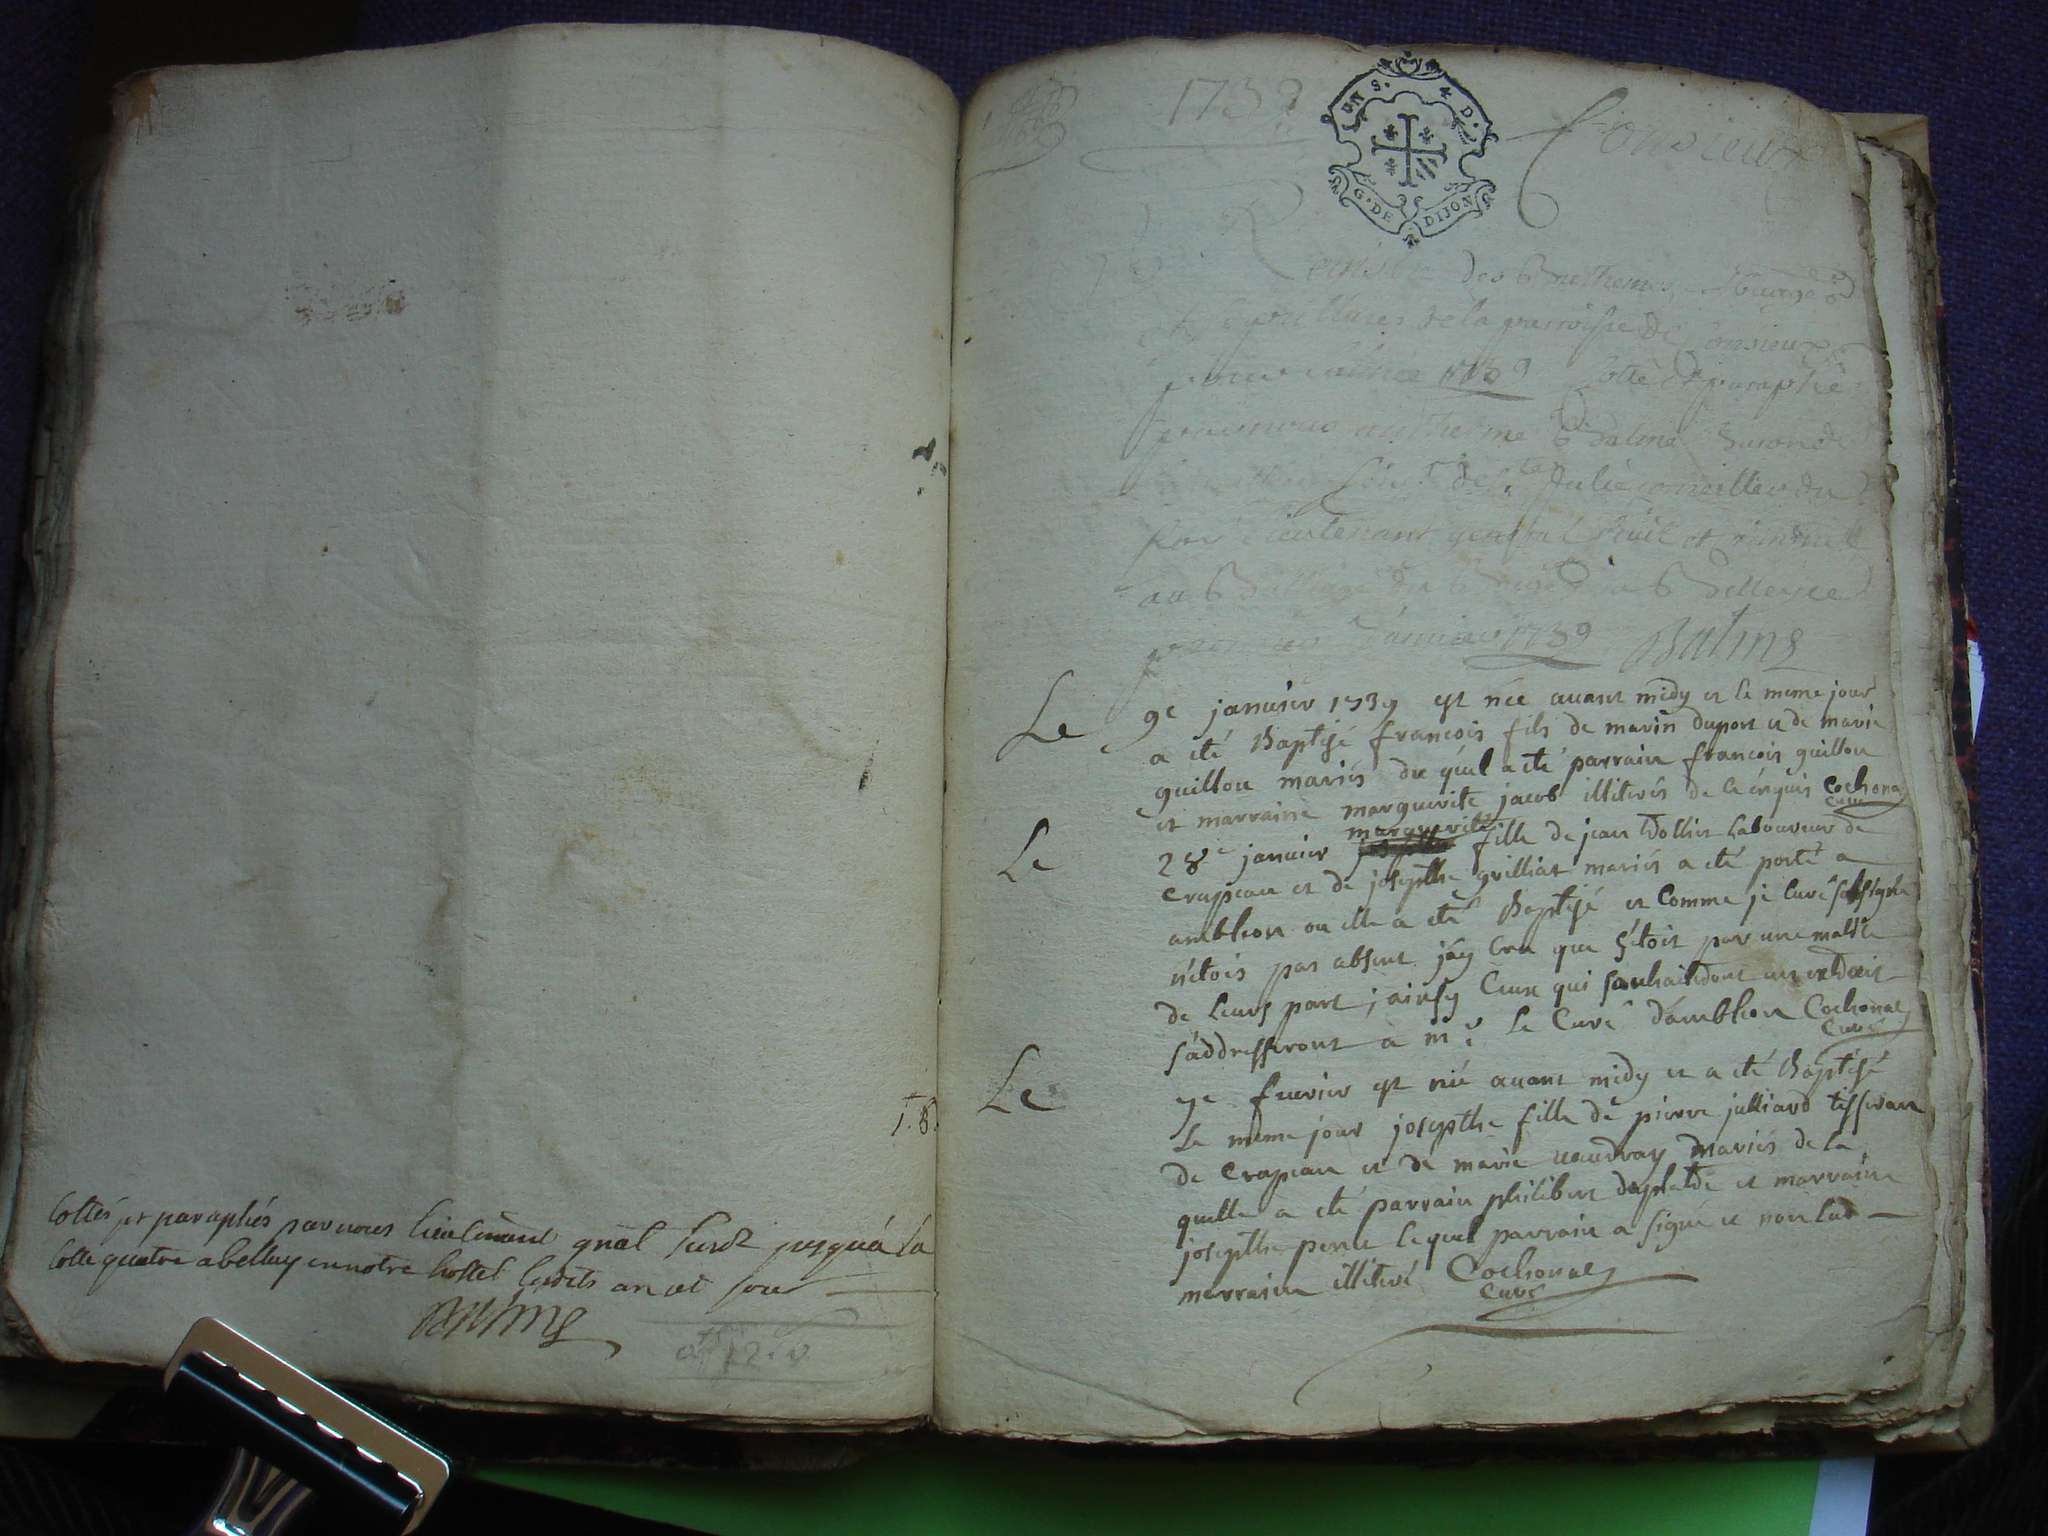 T. 8.
Cottés et paraphés par nous lieutenant gnal susdt jusqua la
Cotte quatre a belley en notre hostel lesdits an et jour
Balme
1739
UN S. 4 D.
G. DE DIJON
Consieux
Registre des Bathemes, Mariages
et sepultures de la parroisse de Consieux
pour l'année 1739 Cotté et paraphé
par nous antheme Balme
de Ste Julie conseiller du
Roy Lieutenant general Civil et criminel
au Balliage du Bugey a Belley ce
premier Janvier 1739 Balme
Le 9e janvier 1739 est née avant midy et le meme jour
a eté Baptisé francois fils de marin dupont et de marie
guillou mariés du quel a eté parrain francois guillou
et marraine marguerite jacob illiterés de Cochona
Curé
marguerite
Le 28e janvier fille de jean Dollin Laboureur de
Crapeau et de josepthe grilliat mariés a eté porté a
ambleon ou elle a eté Baptisé et Comme je Curé soussigné
n'etois pas absent j'ay Cru que s'etoit par une malice
de leurs part, ainsy Ceux qui souhaitedont un extdait
s'addresseront a mr. Le Curé d'ambleon Cochona
Curé
Le 7e fevrier est née avant midy et a eté Baptisé
Le meme jour josepthe fille de pierre julliard tisseran
de Crapeau et de marie vaudray mariés de la
quelle a eté parrain philibert duplatde et marraine
josepthe perret lequel parrain a signé et non lad
marraine illiteré Cochona
Curé